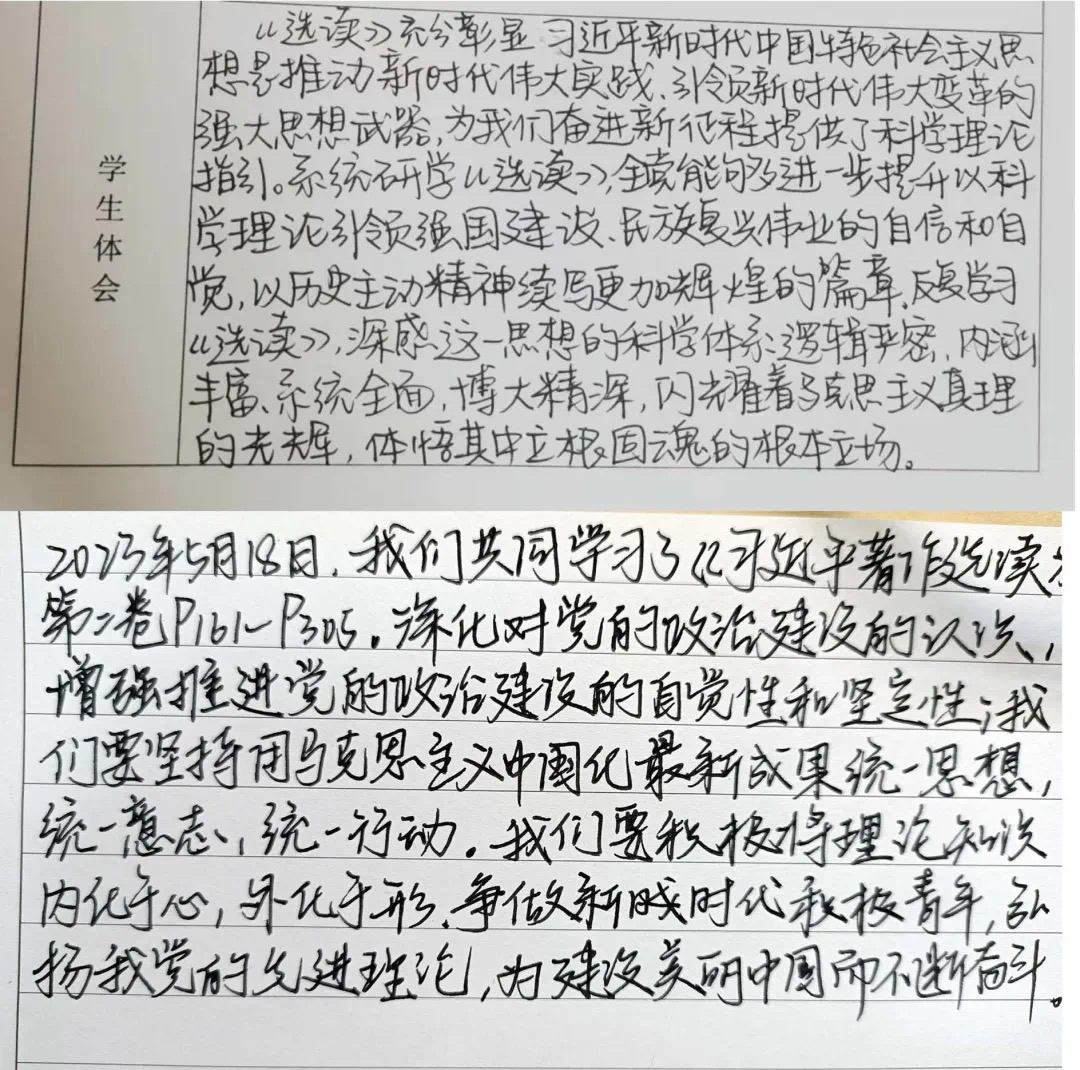 学生体会
《选读》充分彰显习近平新时代中国特色社会主义思
想是推动新时代伟大实践、引领新时代伟大变革的
强大思想武器,为我们奋进新征程提供了科学理论
指引。系统研学《选读》,全党能够进一步提升以科
学理论引领强国建设、民族复兴伟业的自信和自
觉,以历史主动精神续写更加辉煌的篇章.反复学习
《选读》,深感这一思想的科学体系逻辑严密、内涵
丰富、系统全面,博大精深,闪光耀着马克思主义真理
的光辉,体悟其中立根固魂的根本立场。
2023年5月18日,我们共同学习了《习近平著作选读》
第二卷P161~P305。深化对党的政治建设的认识,
增强推进党的政治建设的自觉性和坚定性;我
们要坚持用马克思主义中国化最新成果统一思想,
统一意志,统一行动。我们要积极将理论知识
内化于心,外化于形,争做新时代积极青年,弘
扬我党的先进理论,为建设美丽中国而不断奋斗。